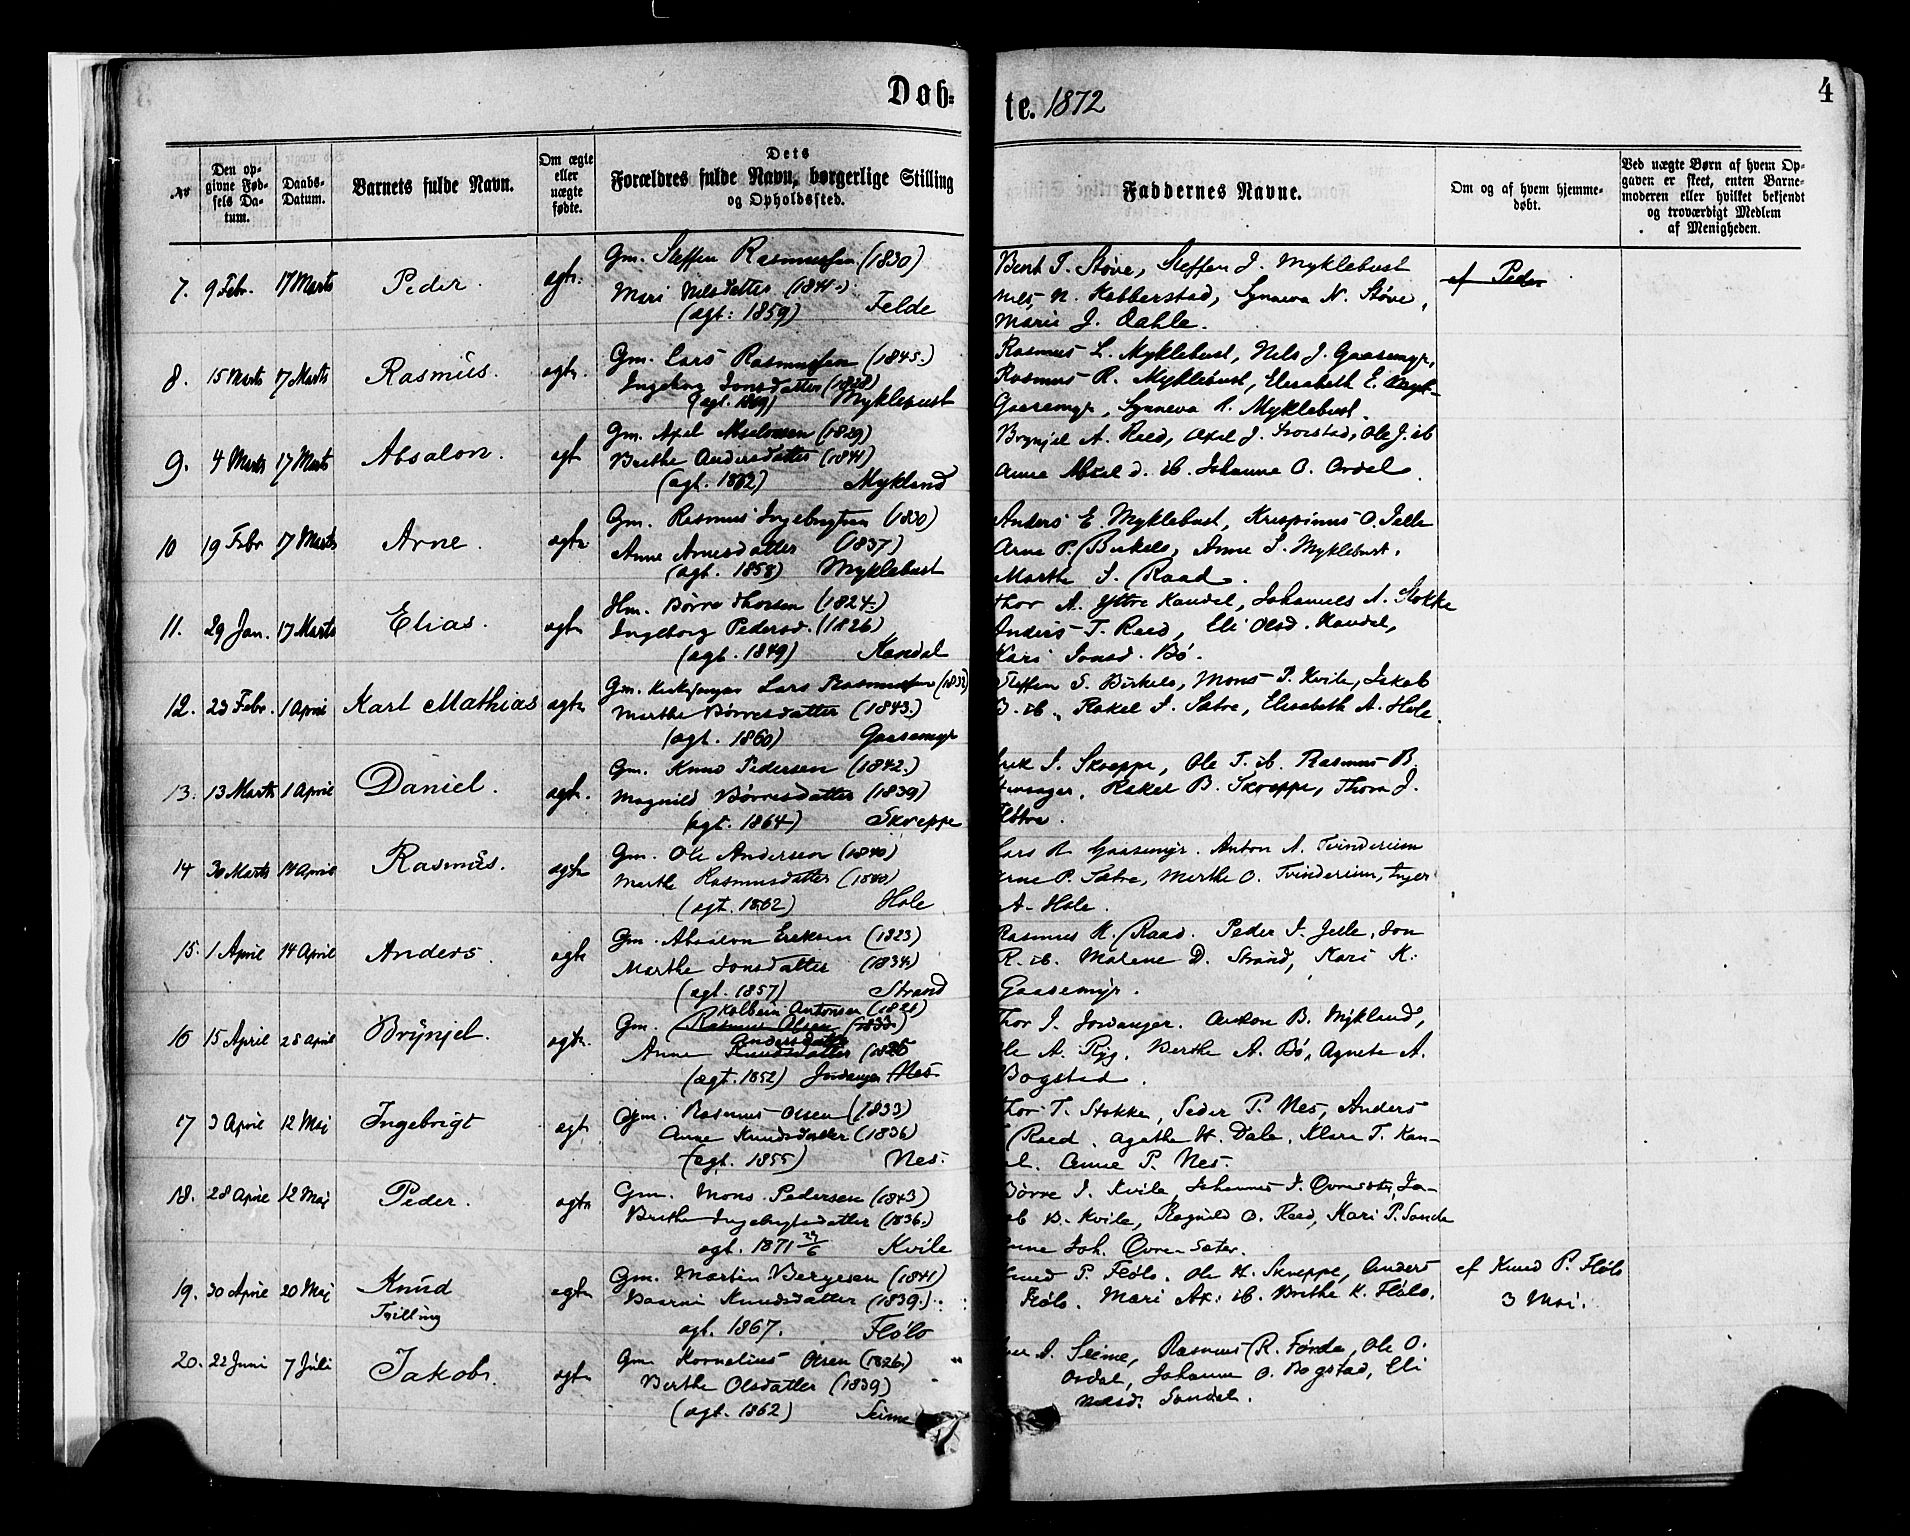 Døb=
te. 1872
4
Nr
Den op-
givne Fød-
sels Da-
tum.
Daabs-
Datum.
Barnets fulde Navn.
Om ægte
eller
uægte
fødte.
Dets
Forældres fulde Navn, borgerlige Stilling
og Opholdssted.
Faddernes Navne.
Om og af hvem hjemme-
døbt.
Ved uægte Børn af hvem Op-
gaven er skeet, enten Barne-
moderen eller hvilket bekjendt
og troværdigt Medlem
af Menigheden.
7. 9 Febr. 17 Marts Peder. ægte.
Gm. Steffen Rasmussen (1830)
Mari Nilsdatter (1841.)
(ægt: 1859) Felde
Bent T. Støve, Steffen J. Myklebust
Nils N. Kobberstad, Synneva N. Støve,
Marie J. Dahle.
af Peder
8. 15 Marts 17 Marts Rasmus. ægte.
Gm. Lars Rasmussen (1845.)
Ingeborg Jonsdatter (1848)
(ægt. 1869) Myklebust
Rasmus L. Myklebust, Nils J. Gaasemyr,
Rasmus R. Myklebust, Elisabeth E.
Gaasemyr, Synneva R. Myklebust.
9. 4 Marts 17 Marts Absalon. ægt
Gm. Axel Absalonsen (1829)
Brithe Andersdatter (1841)
(ægt. 1862) Mykland
Brynjel A. Reed, Axel J. Ivorstad, Ole J. ib
Anne Absal d. ib. Johanne O. Ordal.
10 19 Febr 17 Marts Arne. ægte
Gm. Rasmus Ingebrigtsen (1830)
Anne Arnesdatter (1837)
(ægt. 1858) Myklebust
Anders E. Myklebust, Krispinus O. Jelle
Arne P. Birkelo, Anne S. Myklebust.
Marthe S. Raad.
11. 29 Jan. 17 Marts Elias. ægte
Hm. Børre Thorsen (1824.)
Ingeborg Pedersd. (1826)
(ægt. 1849) Kandal
Thor A. Yttre Kandal, Johannes A. Stokke
Anders T. Reed, Eli Olsd. Kandal,
Kari Jonsd. Bø.
12. 23 Febr. 1 April Karl Mathias ægte
Gm. Kirkesanger Lars Rasmussen (1832)
Marthe Børresdatter (1843.)
(ægt. 1860) Gaasemyr
Steffen S. Birkelo, Mons P. Kvile, Jakob
B. ib., Rakel S. Sætre, Elisabeth A. Hole.
13. 13 Marts 1 April Daniel. ægte.
Gm. Knud Pedersen (1842.)
Magnild Børresdatter (1839)
(ægt. 1864) Skreppe
S. Skreppe, Ole T. ib. Rasmus B.
Rakel B. Skreppe, Thora J.
14 30 Marts 14 April Rasmus. ægte
Gm. Ole Andersen (1840)
Marthe Rasmusdatter (1840)
(ægt. 1862) Hole
Lars R Gaasemyr. Anton A. Tvinderiem
Arne P. Sætre, Marthe O. Tvinderiem, Inger
A. Hole.
15. 1 April 14 April Anders. ægte
Gm. Absalon Eriksen (1823)
Marthe Jonsdatter (1834.)
(ægt. 1857) Strand
Rasmus K. Raad. Peder J. Jelle, Jon
R. ib. Malene D. Strand, Kari K.
Gaasemyr.
16 15 April 28 April Brynjel. ægte.
Kolbein Antonsen (1821)
Gm. Rasmus Olsen (1833)
Andersdatter
Anne Knudsdatter (1826
(ægt. 1852) Jordanger Nes.
Thor J. Jordanger. Anton B. Mykland,
Ole A. Ryg, Berthe A. Bø, Agnete A.
Bogstad.
17 3 April 12 Maj Ingebrigt ægt.
Gm. Rasmus Olsen (1833)
Anne Knudsdatter (1836)
(ægt. 1855) Nes.
Thor T. Stokke, Peder P. Nes, Anders
Reed. Agathe H. Dale, Klara T. Kan-
Anne P. Nes.
18. 28 April 12 Maj Peder. ægte
Gm. Mons Pedersen (1843)
Brithe Ingebrigtsdatter (1836.)
ægt. 1871 29/6 Kvile
Børre J. Kvile, Johannes J. Øvresæter, Ja-
kob B. Kvile, Ragnild O. Reed, Mari P. Sande
Anne Joh. Øvre-Sæter.
19. 30 April 20 Maj Knud ægte
Tvilling
Gm. Martin Bergesen (1841)
Baarni Knudsdatter (1839.)
ægt. 1867. FløLo
Knud P. Flølo. Ole H. Skreppe, Anders
Flølo. Mari Ax: ib. Brithe K. Flølo.
af Knud P. Flølo
3 Mai.
20. 22 Juni 7 Juli Jakob. ægte
Gm. Kornelius Olsen (1826.)
Berthe Olsdatter (1839)
(ægt. 1862) Seime
A. Seime, Rasmus R. Førde, Ole O.
Ordal, Johanne O. Bogstad, Eli
Sandal.